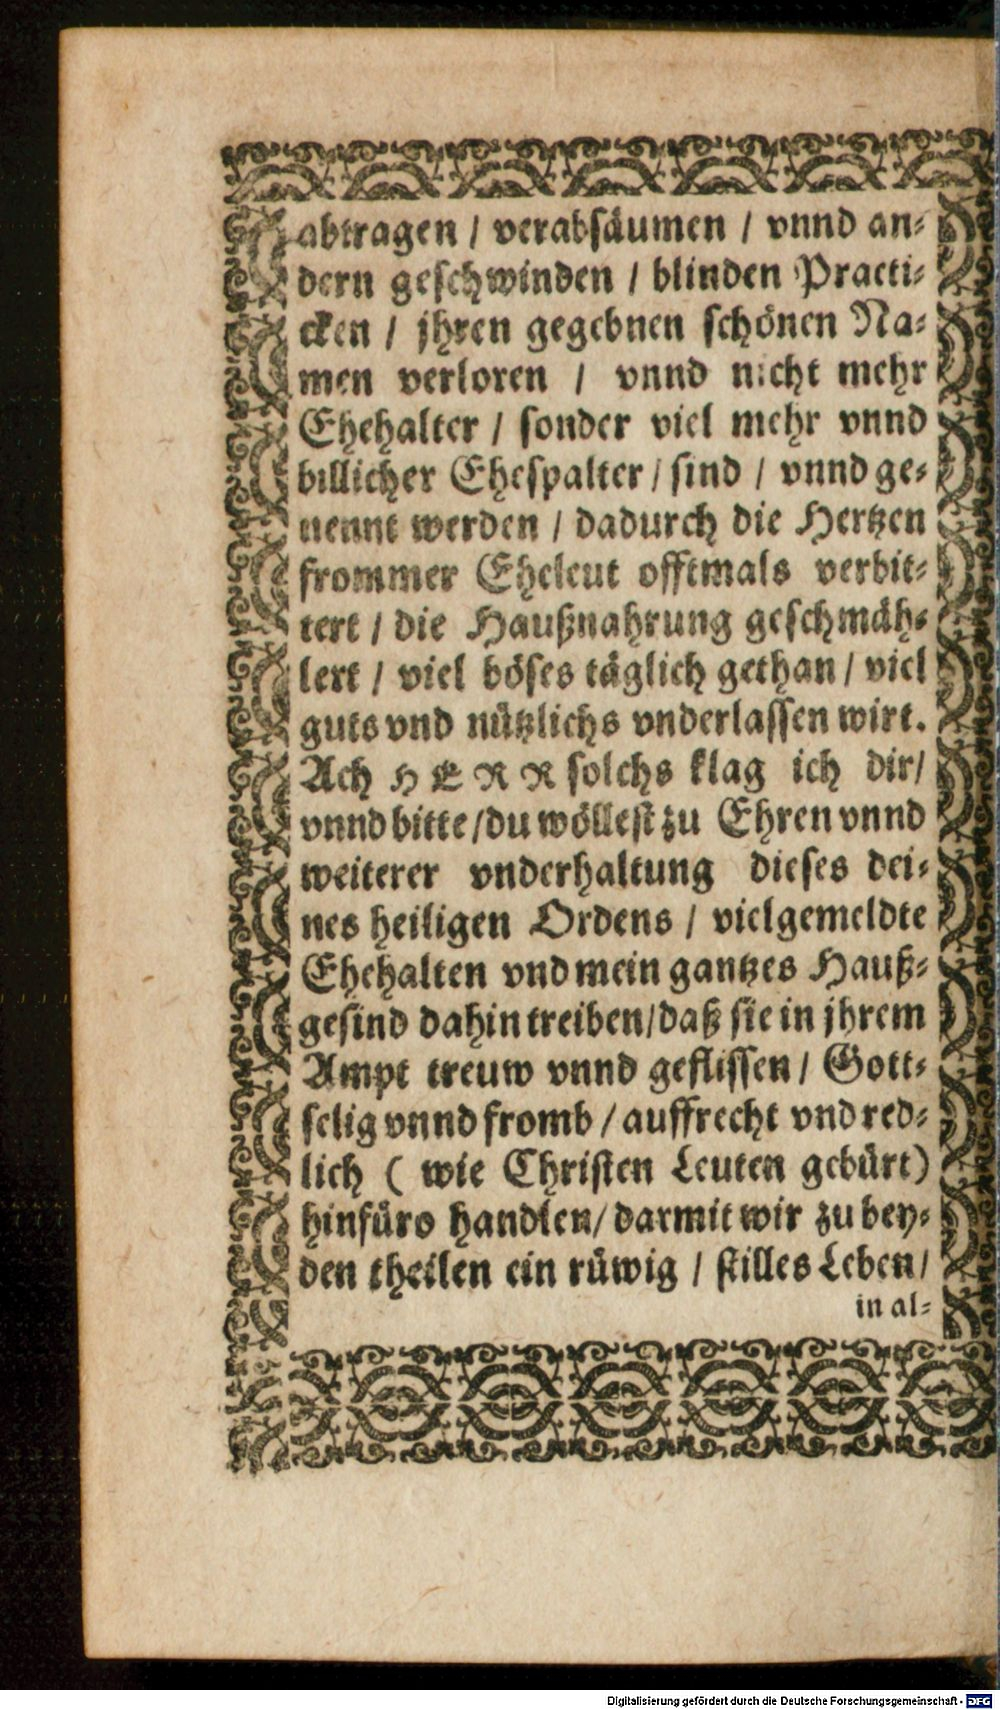 abtragen / verabsäumen / vnnd an-
dern geschwinden / blinden Practi-
cken / jhren gegebnen schönen Na-
men verloren / vnnd nicht mehr
Ehehalter / sonder viel mehr vnnd
billicher Ehespalter / sind / vnnd ge-
nennt werden / dadurch die Hertzen
frommer Eheleut offtmals verbit-
tert / die Haußnahrung geschmäh-
lert / viel böses täglich gethan / viel
guts vnd nützlichs vnderlassen wirt.
Ach HERR solchs klag ich dir/
vnnd bitte /du wöllest zu Ehren vnnd
weiterer vnderhaltung dieses dei-
nes heiligen Ordens / vielgemeldte
Ehehalten vnd mein gantzes Hauß-
gesind dahin treiben/daß sie in jhrem
Ampt treuw vnnd geflissen / Gott-
selig vnnd fromb / auffrecht vnd red-
lich ( wie Christen Leuten gebürt)
hinfüro handlen/ darmit wir zu bey-
den theilen ein rüwig / stilles Leben /
in al-
Digitalisierung gefördert durch die Deutsche Forschungsgemeinschaft - DFG